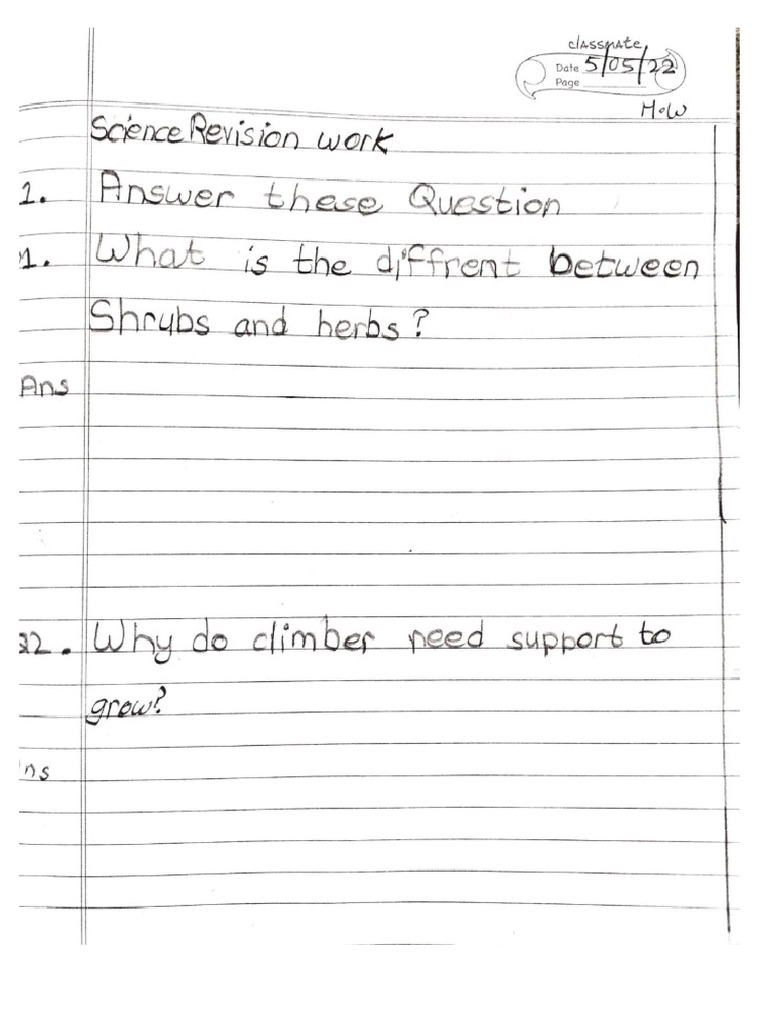 classmate
Date 5/05/22
Page
H.W
Science Revision work
1. Answer these Question
1. What is the diffrent between
Shrubs and herbs?
Ans
2. Why do climber need support to
grow?
ns